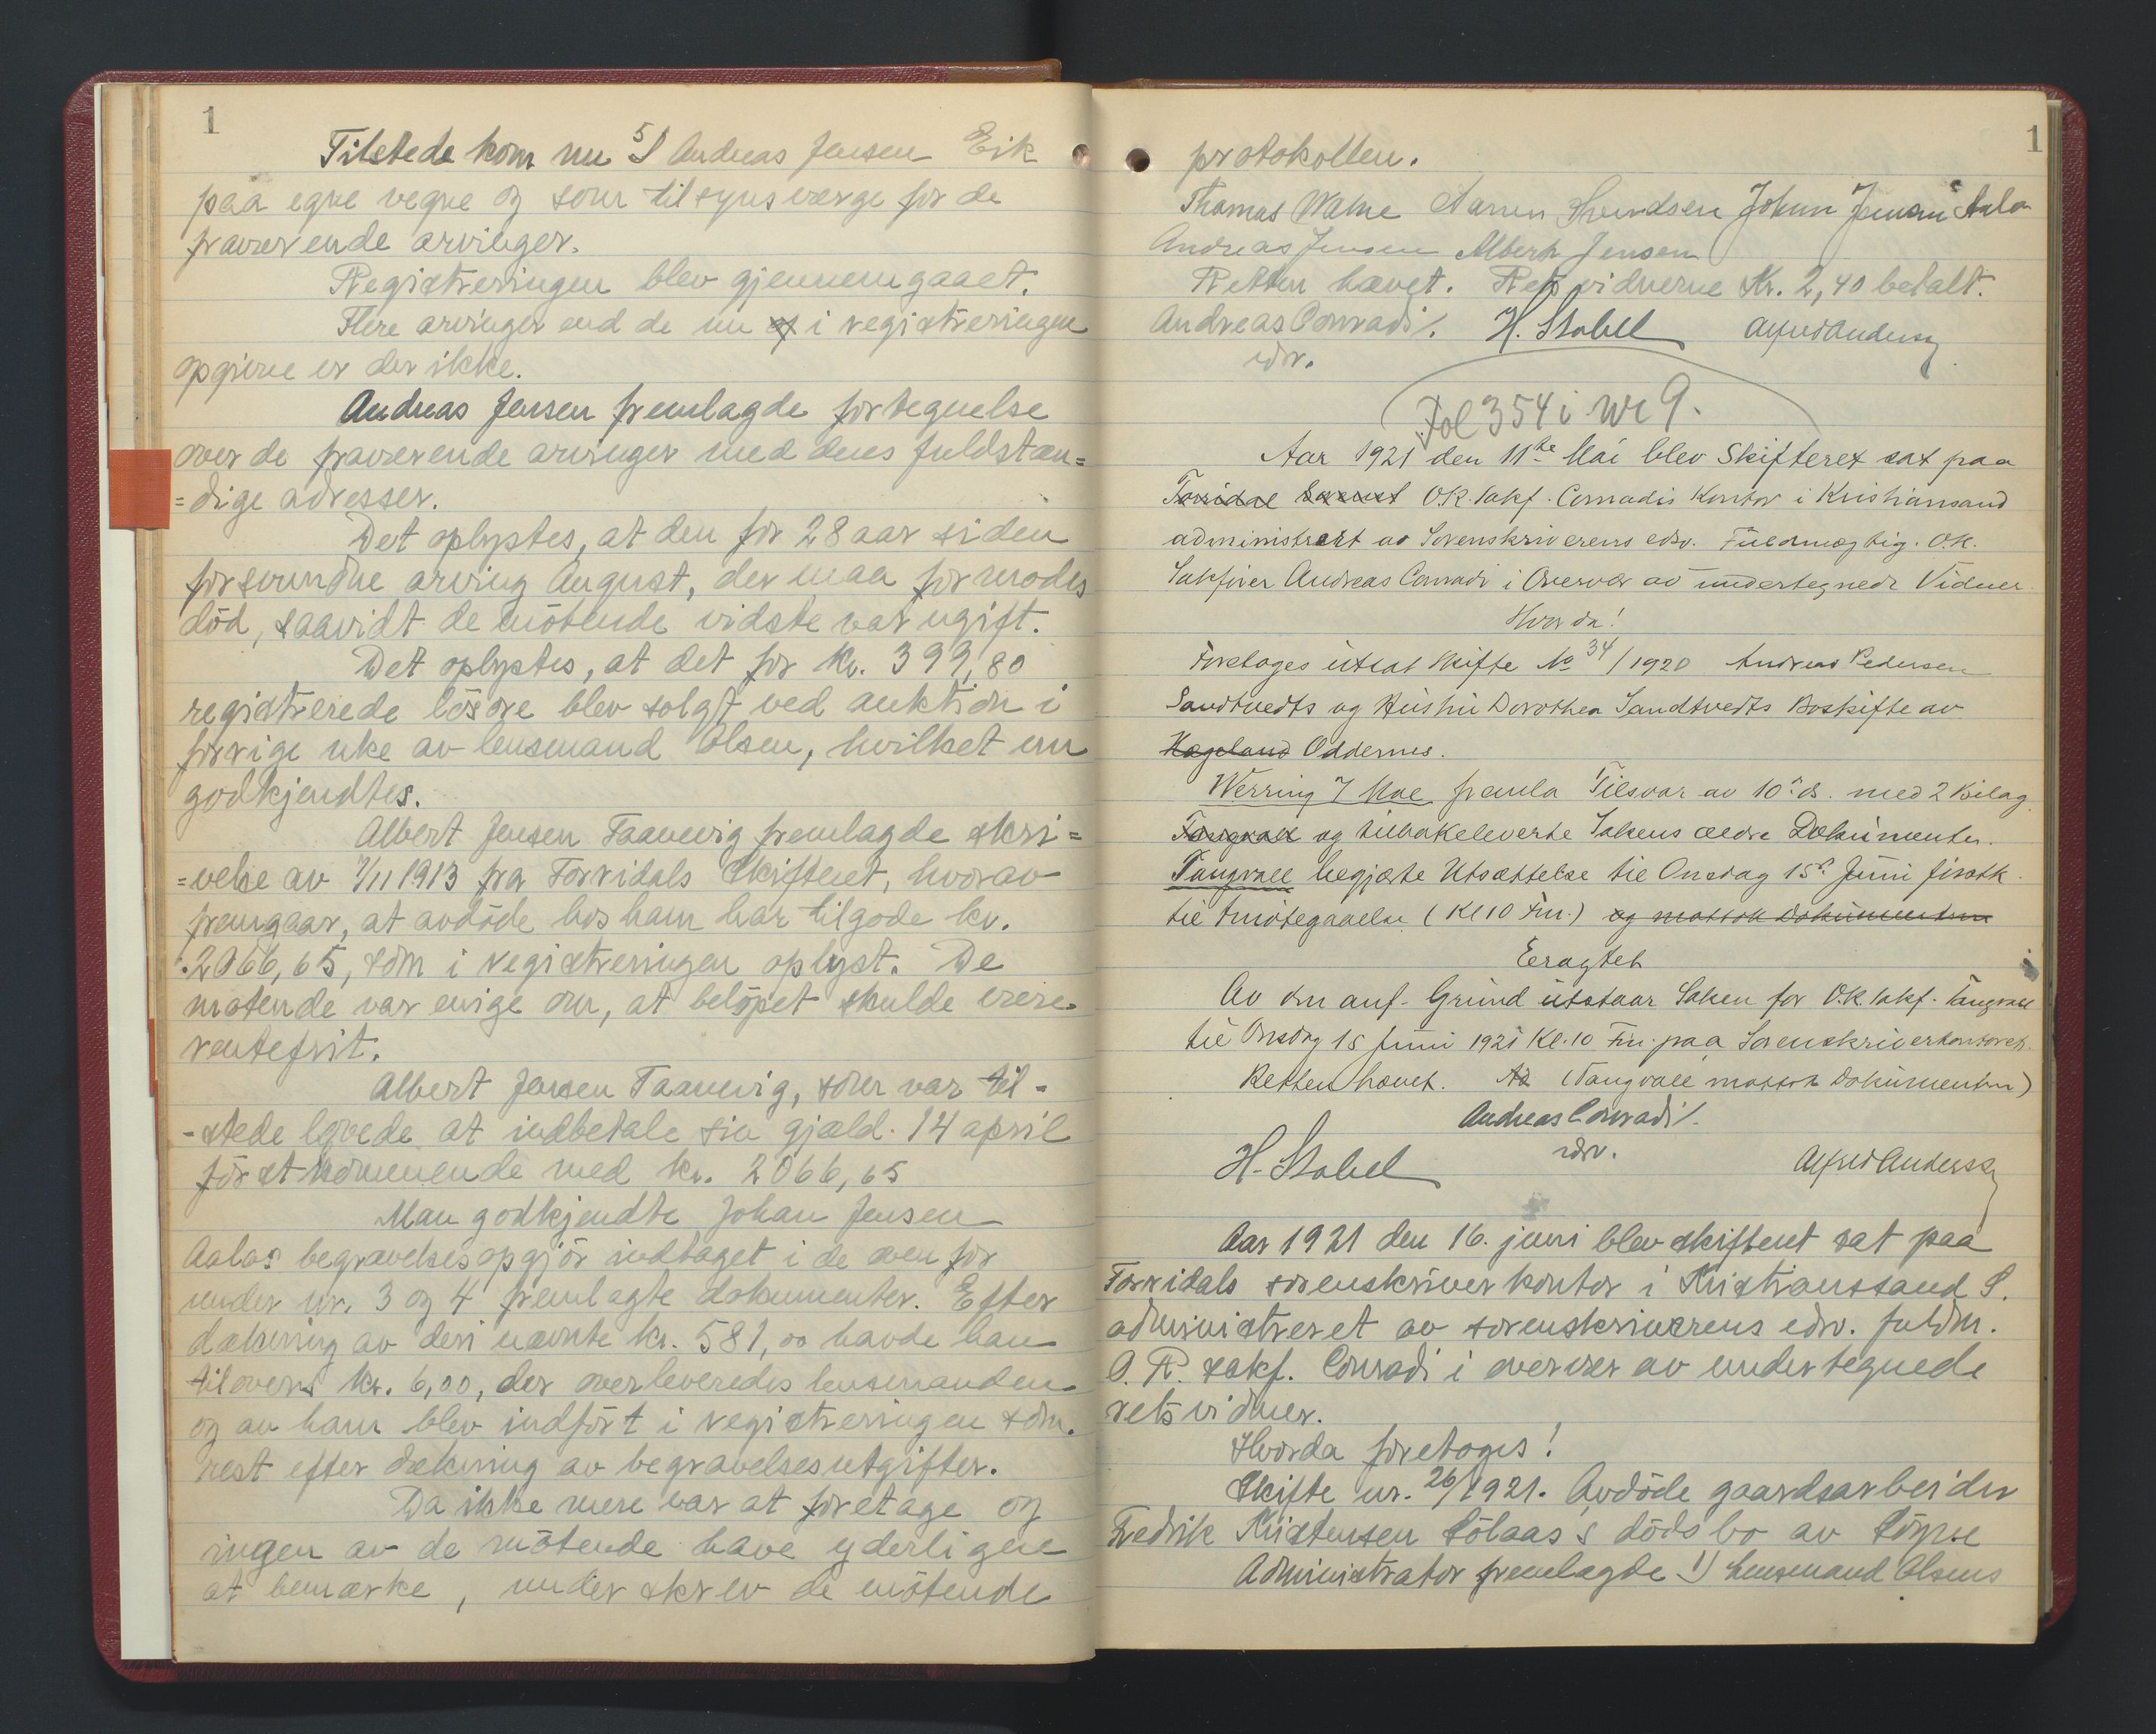 1
Tilstede kom nu 5) Andreas Jensen Eik
paa egne vegne og som tilsynsværge for de
fraværende arvinger.
Registreringen blev gjennemgaaet.
Flere arvinger end de nu i registreringen
opgivne er der ikke.
Andreas Jensen fremlagde fortegnelse
over de fraværende arvinger med deres fuldstæn=
=dige adresser.
Det oplystes, at den for 28 aar siden
forsvundne arving August, der maa formodes
död, saavidt de mötende vidste var ugift.
Det oplystes, at det for kr. 399,80
registrerede lösöre blev solgt ved auktion i
forrige uke av lensmand Olsen, hvilket
godkjendtes.
Albert Jensen Taanevig fremlagde skri=
=velse av 7/11 1913 fra Torridals Skifteret, hvorav
fremgaar, at avdöde hos ham har tilgode kr.
2066,65, som i registreringen oplyst. De
mötende var enige om, at belöpet skulde være
rentefrit.
Albert Jensen Taanevig, som var til-
-stede lovede at indbetale sin gjæld 14 april
förstkommende med kr. 2066,65
Man godkjendte Johan Jensen
Aalos begravelsesopgjör indtaget i de oven for
under nr. 3 og 4 fremlagte dokumenter. Efter
dækning av deri nævnte kr. 581,00 havde han
tilovers kr. 6,00, der overleveredes lensmanden
og av ham blev indfört i registreringen som
rest efter dækning av begravelsesutgifter.
Da ikke mere var at foretage og
ingen av de mötende have yderligere
at bemærke, underskrev de mötende
1
protokollen.
Thomas Walne Aanen Svendsen Johan Jensen Aalo
Andreas Jensen Albert Jensen
Retten hævet. Retsvidnerne Kr. 2,40 betalt.
Andreas Conradi. H. Stabel Alfred Andersen
edsv.
Fol 354 i nr 9.
Aar 1921 den 11te Mai blev Skifteret sat paa
Torridal O.R. Sakf. Conradis Kontor i Kristiansand
administrert av Sorenskriverens edsv. Fuldmægtig. O.R.
Sakfører Andreas Conradi i Overvær av undertegnede Vidner
Hvorda!
Foretoges utsat Skifte No 34/1920 Andreas Pedersen
Sandtvedts og Hustru Dorothea Sandtvedts Boskifte av
Hægeland Oddernes.
Werring 7 Mae fremla Tilsvar av 10 ds. med 2 Bilag
Tangvall og tilbakeleverte Sakens ældre Dokumenter.
Tangvall begjærte Utsættelse til Onsdag 15de Juni förstk.
til Imötegaaelse (Kl 10 Fm.) og mottok Dokumenterne
Eragtet
Av den anf. Grund utstaar Saken for O.R. Sakf. Tangvall
til Onsdag 15 Juni 1921 Kl. 10 Fm. paa Sorenskriverkontoret.
Retten hævet. (Tangvall mottok Dokumenterne)
Andreas Conradi.
edsv.
H. Stabel Alfred Andersen
Aar 1921 den 16. juni blev skifteret sat paa
Torridals sorenskriverkontor i Kristianssand S.
administreret av sorenskriverens edsv. fuldm.
O. R. sakf. Conradi i overvær av undertegnede
retsvidner.
Hvorda foretoges!
Skifte nr. 26/1921. Avdöde gaardsarbeider
Fedrik Kristensen Sölaas's dödsbo av
Administrator fremlagde 1) Lensmand Olsens